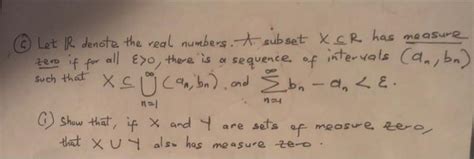 (c) Let ℝ denote the real numbers. A subset X ⊆ ℝ has measure
zero if for all ε>0, there is a sequence of intervals (aₙ, bₙ)
such that X ⊆ ⋃_{n=1}^{∞} (aₙ, bₙ) and ∑_{n=1}^{∞} bₙ - aₙ < ε.
(i) Show that, if X and Y are sets of measure zero,
that X ∪ Y also has measure zero.